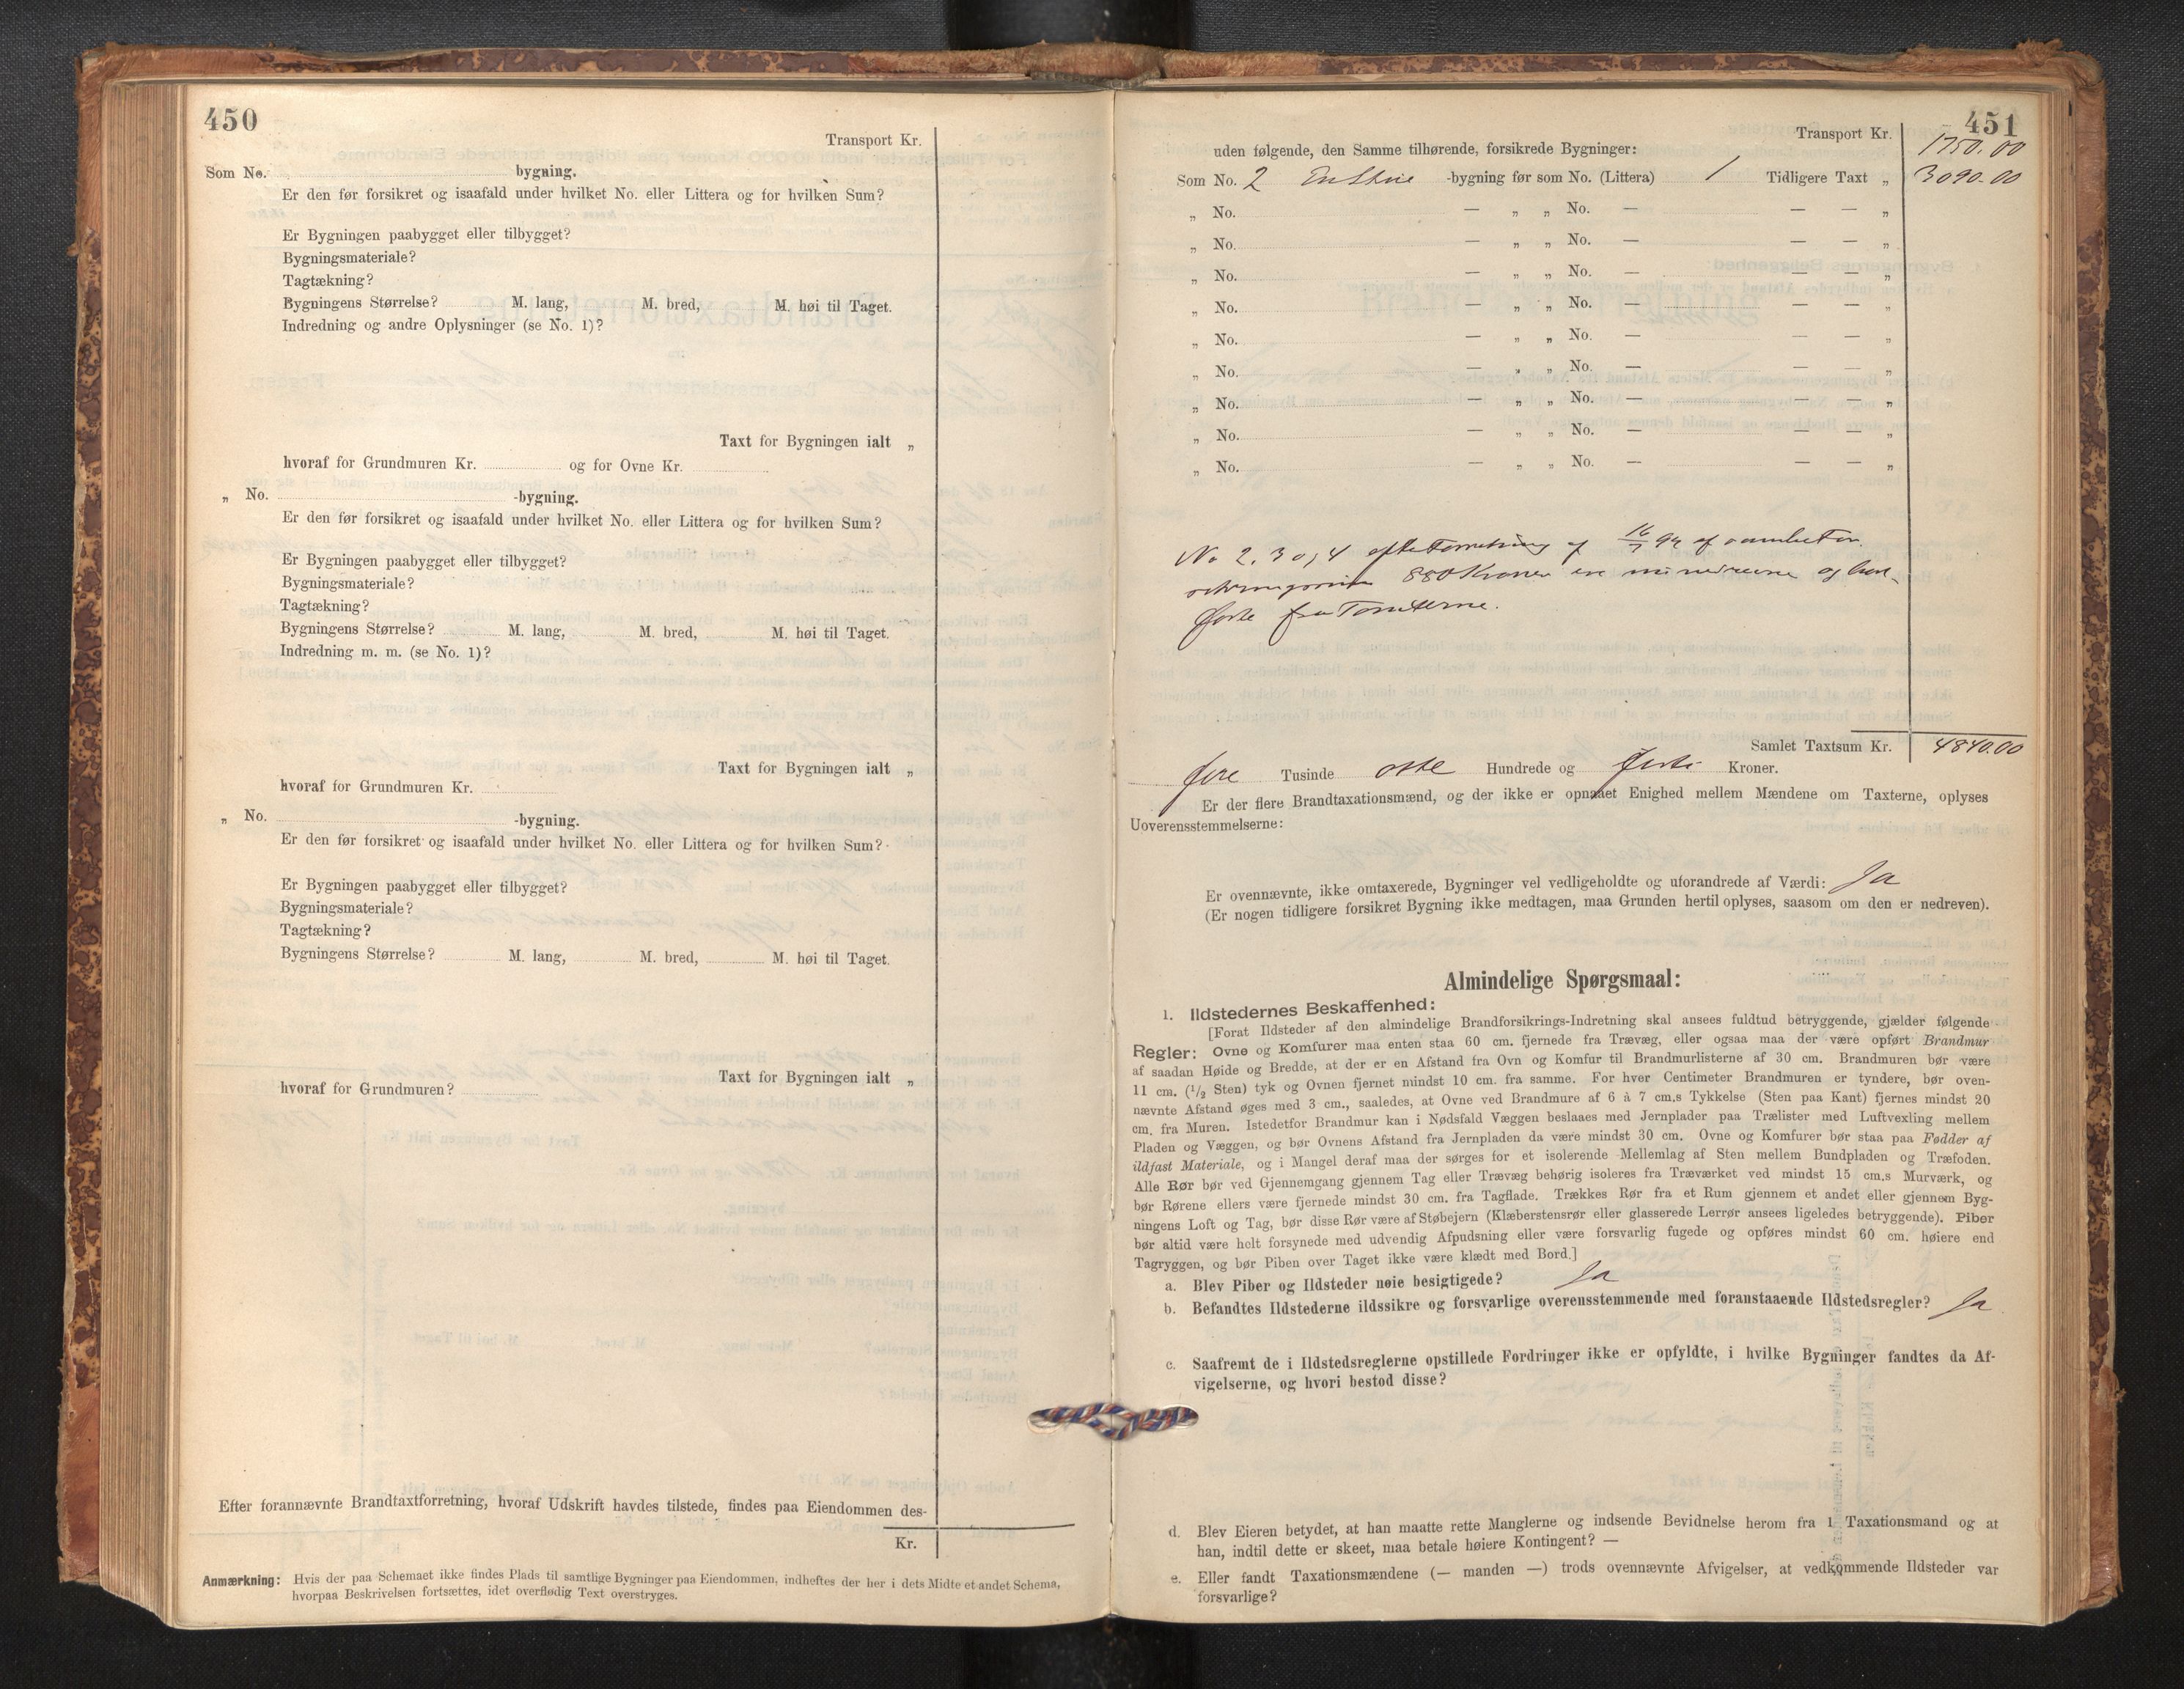 450
Transport Kr.
Som No. bygning.
Er den før forsikret og isaafald under hvilket No. eller Littera og for hvilken Sum?
Er Bygningen paabygget eller tilbygget?
Bygningsmateriale?
Tagtækning?
Bygningens Størrelse? M. lang, M. bred, M. høi til Taget.
Indredning og andre Oplysninger (se No. 1)?
Taxt for Bygningen ialt „
hvoraf for Grundmuren Kr. og for Ovne Kr.
„ No. -bygning.
Er den før forsikret og isaafald under hvilket No. eller Littera og for hvilken Sum?
Er Bygningen paabygget eller tilbygget?
Bygningsmateriale?
Tagtækning?
Bygningens Størrelse? M. lang, M. bred, M. høi til Taget.
Indredning m. m. (se No. 1)?
Taxt for Bygningen ialt „
hvoraf for Grundmuren Kr.
„ No. -bygning.
Er den før forsikret og isaafald under hvilket No. eller Littera og for hvilken Sum?
Er Bygningen paabygget eller tilbygget?
Bygningsmateriale?
Tagtækning?
Bygningens Størrelse? M. lang, M. bred, M. høi til Taget.
Taxt for Bygningen ialt „
hvoraf for Grundmuren?
Efter forannævnte Brandtaxtforretning, hvoraf Udskrift havdes tilstede, findes paa Eiendommen des-
Kr.
Anmærkning: Hvis der paa Schemaet ikke findes Plads til samtlige Bygninger paa Eiendommen, indheftes der her i dets Midte et andet Schema,
hvorpaa Beskrivelsen fortsættes, idet overflødig Text overstryges.
451
Transport Kr. 1750.00
uden følgende, den Samme tilhørende, forsikrede Bygninger:
Som No. 2 -bygning før som No. (Littera) 1 Tidligere Taxt „ 3090.00
„ No. — „ „ No. — — — „
„ No. — „ „ No. — — — „
„ No. — „ „ No. — — — „
„ No. — „ „ No. — — — „
„ No. — „ „ No. — — — „
„ No. — „ „ No. — — — „
„ No. — „ „ No. — — — „
„ No. — „ „ No. — — — „
„ No. — „ „ No. — — — „
No 2, 3 og 4 efter Forretning af 16/7 94 af samlet For-
sikringssum 880 Kroner ere nedrevne og
fra Tomterne.
Samlet Taxtsum Kr. 4840.00
fire Tusinde otte Hundrede og førti Kroner.
Er der flere Brandtaxationsmænd, og der ikke er opnaaet Enighed mellem Mændene om Taxterne, oplyses
Uoverensstemmelserne:
Er ovennævnte, ikke omtaxerede, Bygninger vel vedligeholdte og uforandrede af Værdi: Ja
(Er nogen tidligere forsikret Bygning ikke medtagen, maa Grunden hertil oplyses, saasom om den er nedreven).
Almindelige Spørgsmaal:
1. Ildstedernes Beskaffenhed:
[Forat Ildsteder af den almindelige Brandforsikrings-Indretning skal ansees fuldtud betryggende, gjælder følgende
Regler: Ovne og Komfurer maa enten staa 60 cm. fjernede fra Trævæg, eller ogsaa maa der være opført Brandmur
af saadan Høide og Bredde, at der er en Afstand fra Ovn og Komfur til Brandmurlisterne af 30 cm. Brandmuren bør være
11 cm. (1/2 Sten) tyk og Ovnen fjernet mindst 10 cm. fra samme. For hver Centimeter Brandmuren er tyndere, bør oven-
nævnte Afstand øges med 3 cm., saaledes, at Ovne ved Brandmure af 6 à 7 cm.s Tykkelse (Sten paa Kant) fjernes mindst 20
cm. fra Muren. Istedetfor Brandmur kan i Nødsfald Væggen beslaaes med Jernplader paa Trælister med Luftvexling mellem
Pladen og Væggen, og bør Ovnens Afstand fra Jernpladen da være mindst 30 cm. Ovne og Komfurer bør staa paa Fødder af
ildfast Materiale, og i Mangel deraf maa der sørges for et isolerende Mellemlag af Sten mellem Bundpladen og Træfoden.
Alle Rør bør ved Gjennemgang gjennem Tag eller Trævæg behørig isoleres fra Træværket ved mindst 15 cm.s Murværk, og
bør Rørene ellers være fjernede mindst 30 cm. fra Tagflade. Trækkes Rør fra et Rum gjennem et andet eller gjennem Byg-
ningens Loft og Tag, bør disse Rør være af Støbejern (Klæberstensrør eller glasserede Lerrør ansees ligeledes betryggende). Piber
bør altid være helt forsynede med udvendig Afpudsning eller være forsvarlig fugede og opføres mindst 60 cm. høiere end
Tagryggen, og bør Piben over Taget ikke være klædt med Bord.]
a. Blev Piber og Ildsteder nøie besigtigede? Ja
b. Befandtes Ildstederne ildssikre og forsvarlige overensstemmende med foranstaaende Ildstedsregler? Ja
c. Saafremt de i Ildstedsreglerne opstillede Fordringer ikke er opfyldte, i hvilke Bygninger fandtes da Af-
vigelserne, og hvori bestod disse?
d. Blev Eieren betydet, at han maatte rette Manglerne og indsende Bevidnelse herom fra 1 Taxationsmand og at
han, indtil dette er skeet, maa betale høiere Kontingent? —
e. Eller fandt Taxationsmændene (— manden —) trods ovennævnte Afvigelser, at vedkommende Ildsteder var
forsvarlige?